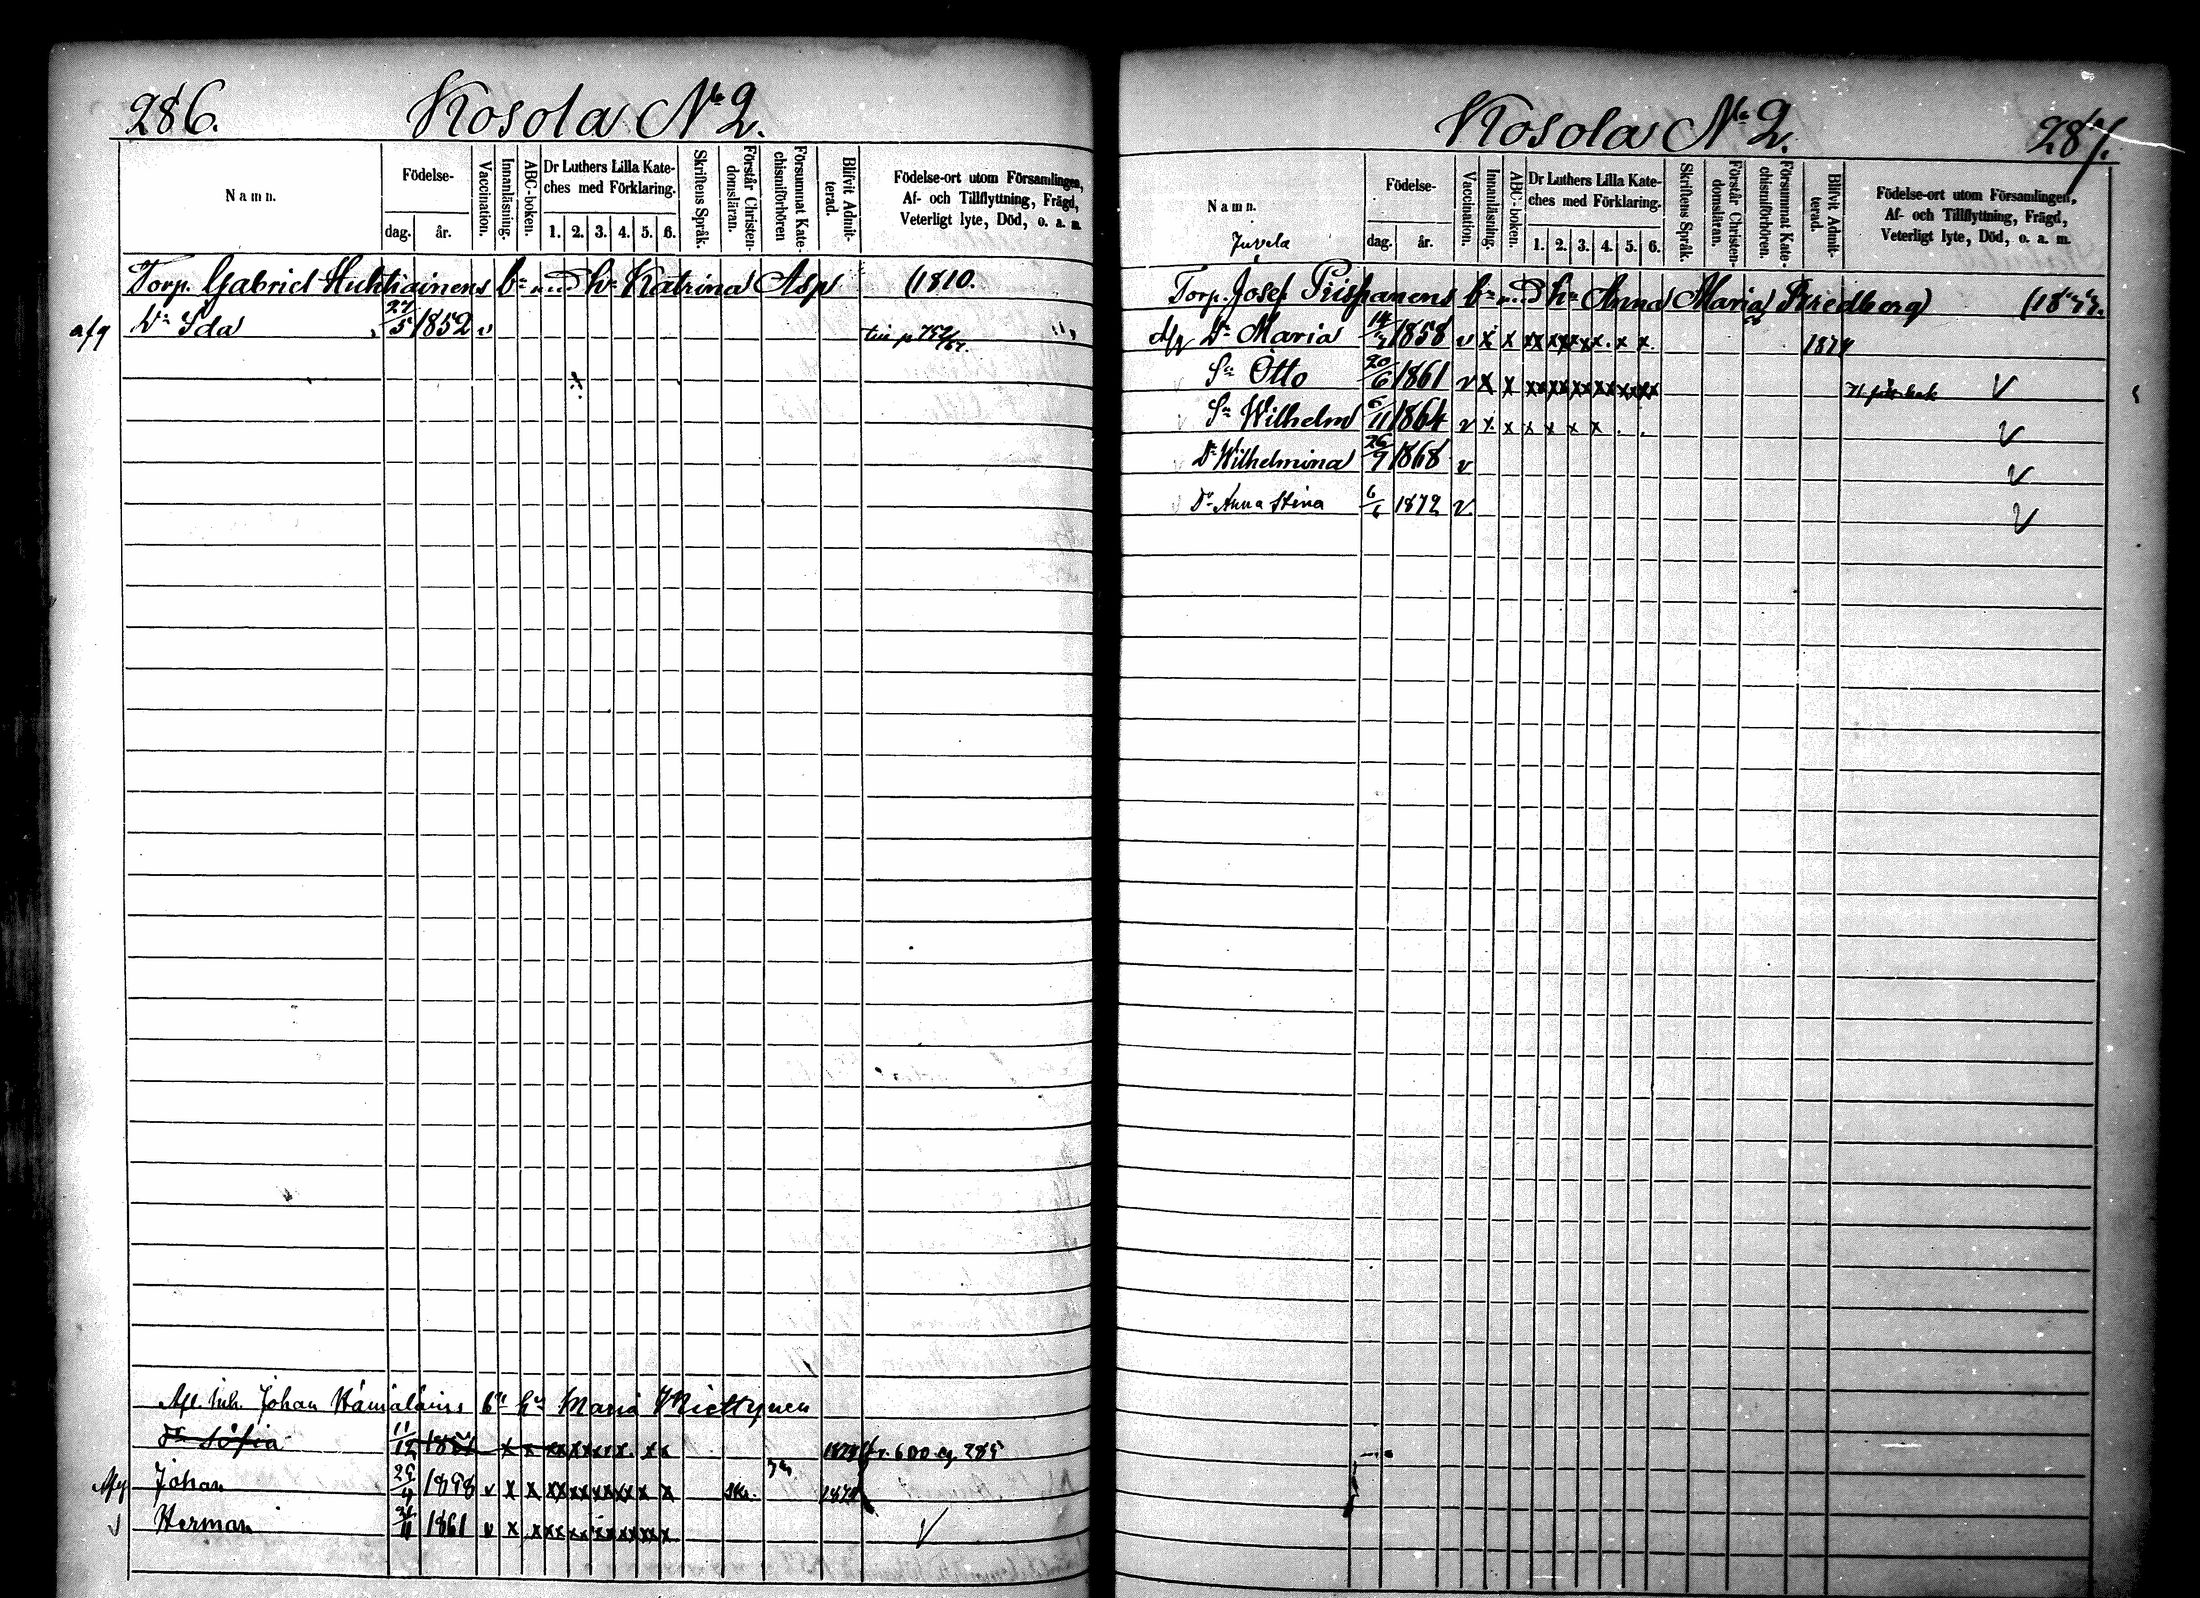 286.
Kosola No 2.
Namn.
Födelse-
dag.
år.
Vaccination.
Innanläsning.
ABC-boken.
Dr Luthers Lilla Kate-
ches med Förklaring.
1. 2. 3. 4. 5. 6.
Skriftens Språk.
Förstår Christen-
domsläran.
Försummat Kate-
chismiförhören
Blifvit Admit-
terad.
Födelse-ort utom Församlingen,
Af- och Tillflyttning, Frägd,
Veterligt lyte, Död, o. a. m.
Torp. Gabriel Huhtiainens bn med hu Katrina Asp (1810.
afg Dr Ida 27/5 1852 v
Johan Hämäläins bn hu Maria Miettynen
Dr Sofia 11/12 x x xx xx xx x. x x fr. 600 eg 285
Johan 1858 v x x xx xx xx xx x x
Herman 1861 v x x xx xx xx xx xx x v
Kosola No 2.
287.
Namn.
Juvela
Födelse-
dag.
år.
Vaccination.
Innanläsning.
ABC-boken.
Dr Luthers Lilla Kate-
ches med Förklaring.
1. 2. 3. 4. 5. 6.
Skriftens Språk.
Förstår Christen-
domsläran.
Försummat Kate-
chismiförhören.
Blifvit Admit-
terad.
Födelse-ort utom Församlingen,
Af- och Tillflyttning, Frägd,
Veterligt lyte, Död, o. a. m.
Torp. Josef Prispanens bn med hu Anna Maria Friedberg
Dr Maria 1858 v x x xx xx xx x. x x.
Sn Otto 20/6 1861 v x x xx xx xx xx xx xx v
Sn Wilhelm 6/11 1864 v x x x x x x . . v
Dr Wilhelmina 26/7 1868 v v
Dr Anna Stina 6/6 1872 v v